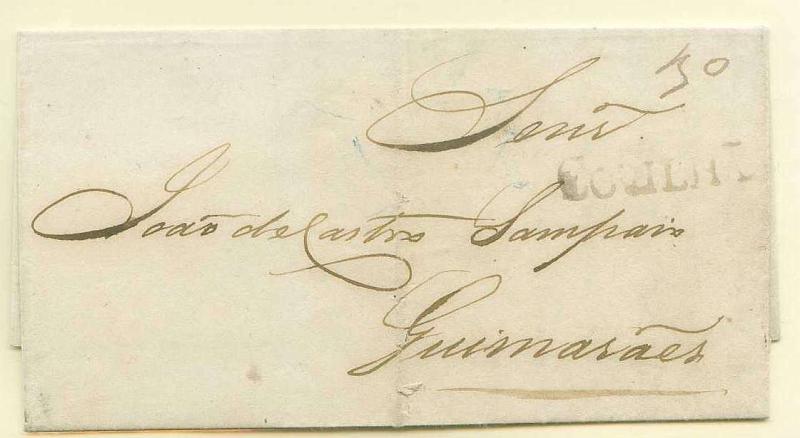 30
Senr
COVILHÃ
João de Castro Sampaio
Guimarães